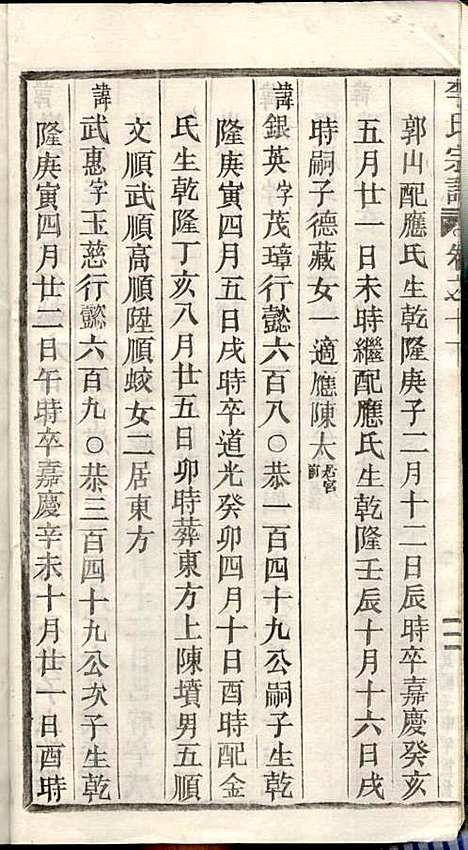 李氏宗譜
郭山配應氏生乾隆庚子二月十二日辰時卒嘉慶癸亥
五月廿一日未時繼配應氏生乾隆壬辰十月十六日戌
時嗣子德藏女一適應陳太老宮前
諱銀英字茂璋行懿六百八○恭一百四十九公嗣子生乾
隆庚寅四月五日戌時卒道光癸卯四月十日酉時配金
氏生乾隆丁亥八月廿五日卯時葬東方上陳墳男五順
文順武順高順陞順蛟女二居東方
諱武惠字玉慈行懿六百九○恭三百四十九公次子生乾
隆庚寅四月廿二日午時卒嘉慶辛未十月廿一日酉時